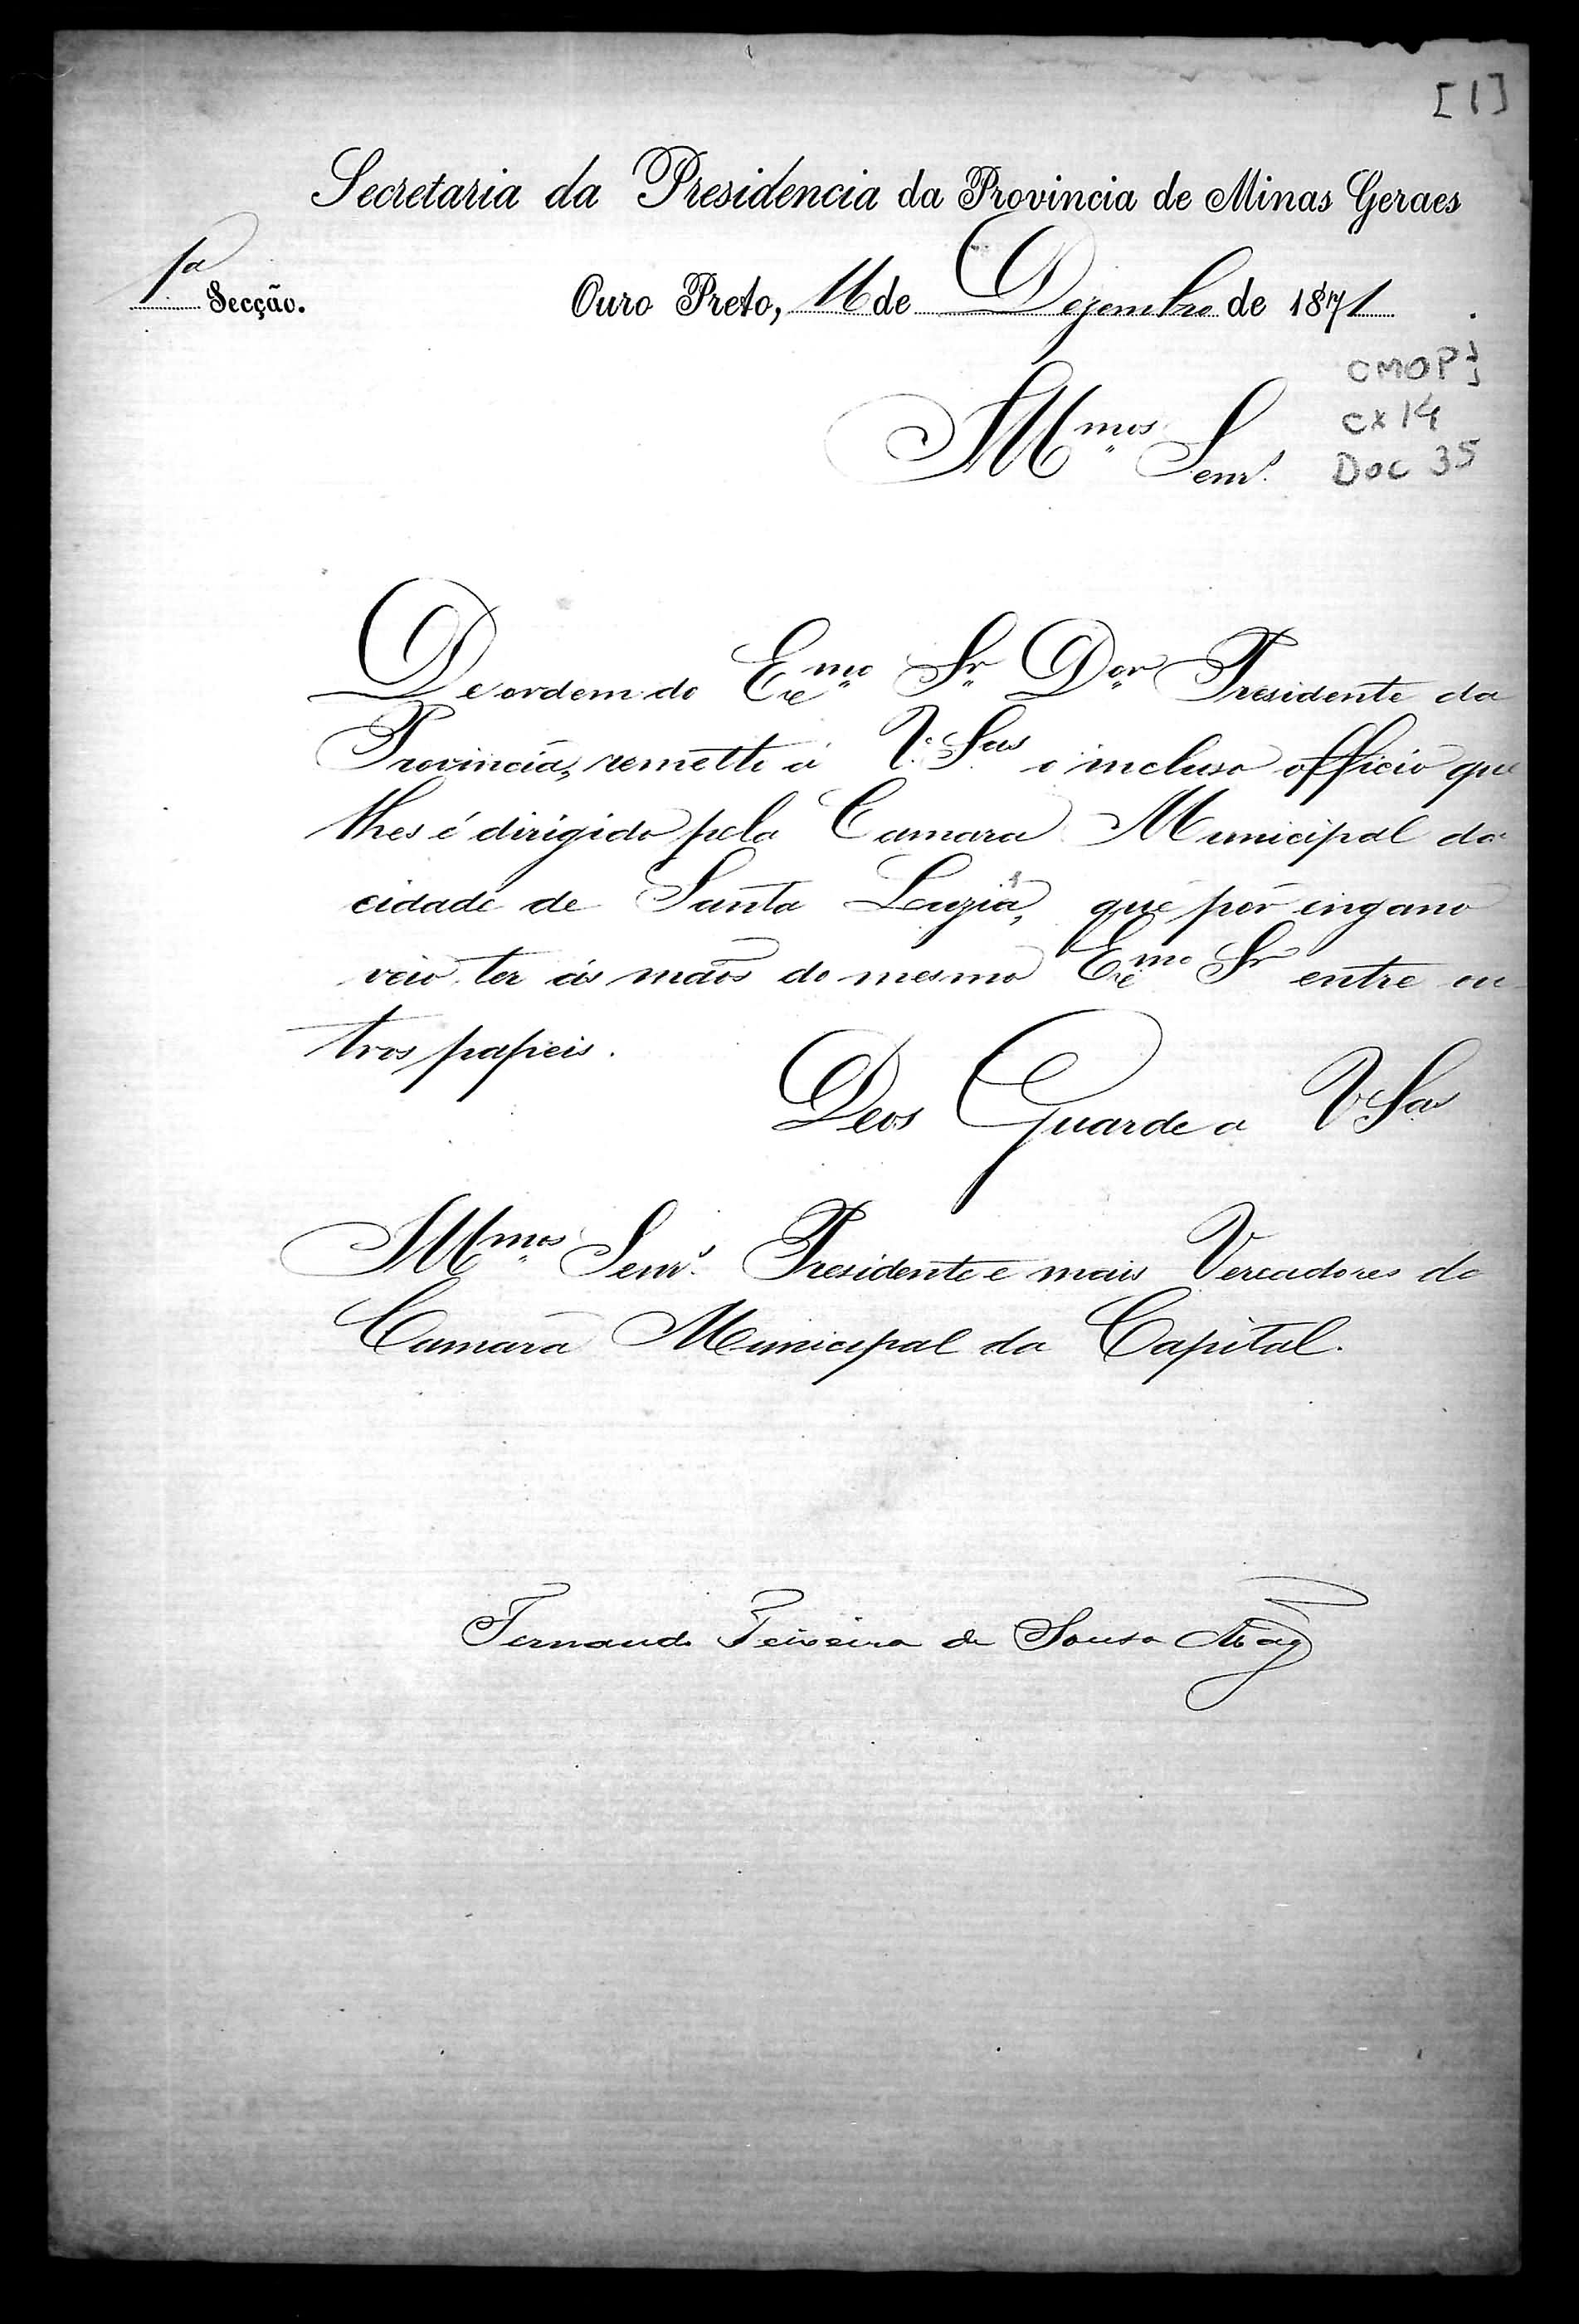 [1]
Secretaria da Presidencia da Provincia de Minas Geraes
1ª Secção. Ouro Preto, 16 de Dezembro de 1871
CMOP
cx 14
Illmos Senrs
Doc 35
De ordem do Exmo Sr Dor Presidente da
Provincia, remetto á V. Sas o incluso officio que
lhes é dirigido pela Camara Municipal da
cidade de Santa Luzia, que por engano
veio ter ás mãos do mesmo Exmo Sr entre ou-
tros papeis.
Deos Guarde a V Sas
Illmos Senrs Presidente e mais Vereadores da
Camara Municipal da Capital.
Fernando Teixeira de Sousa